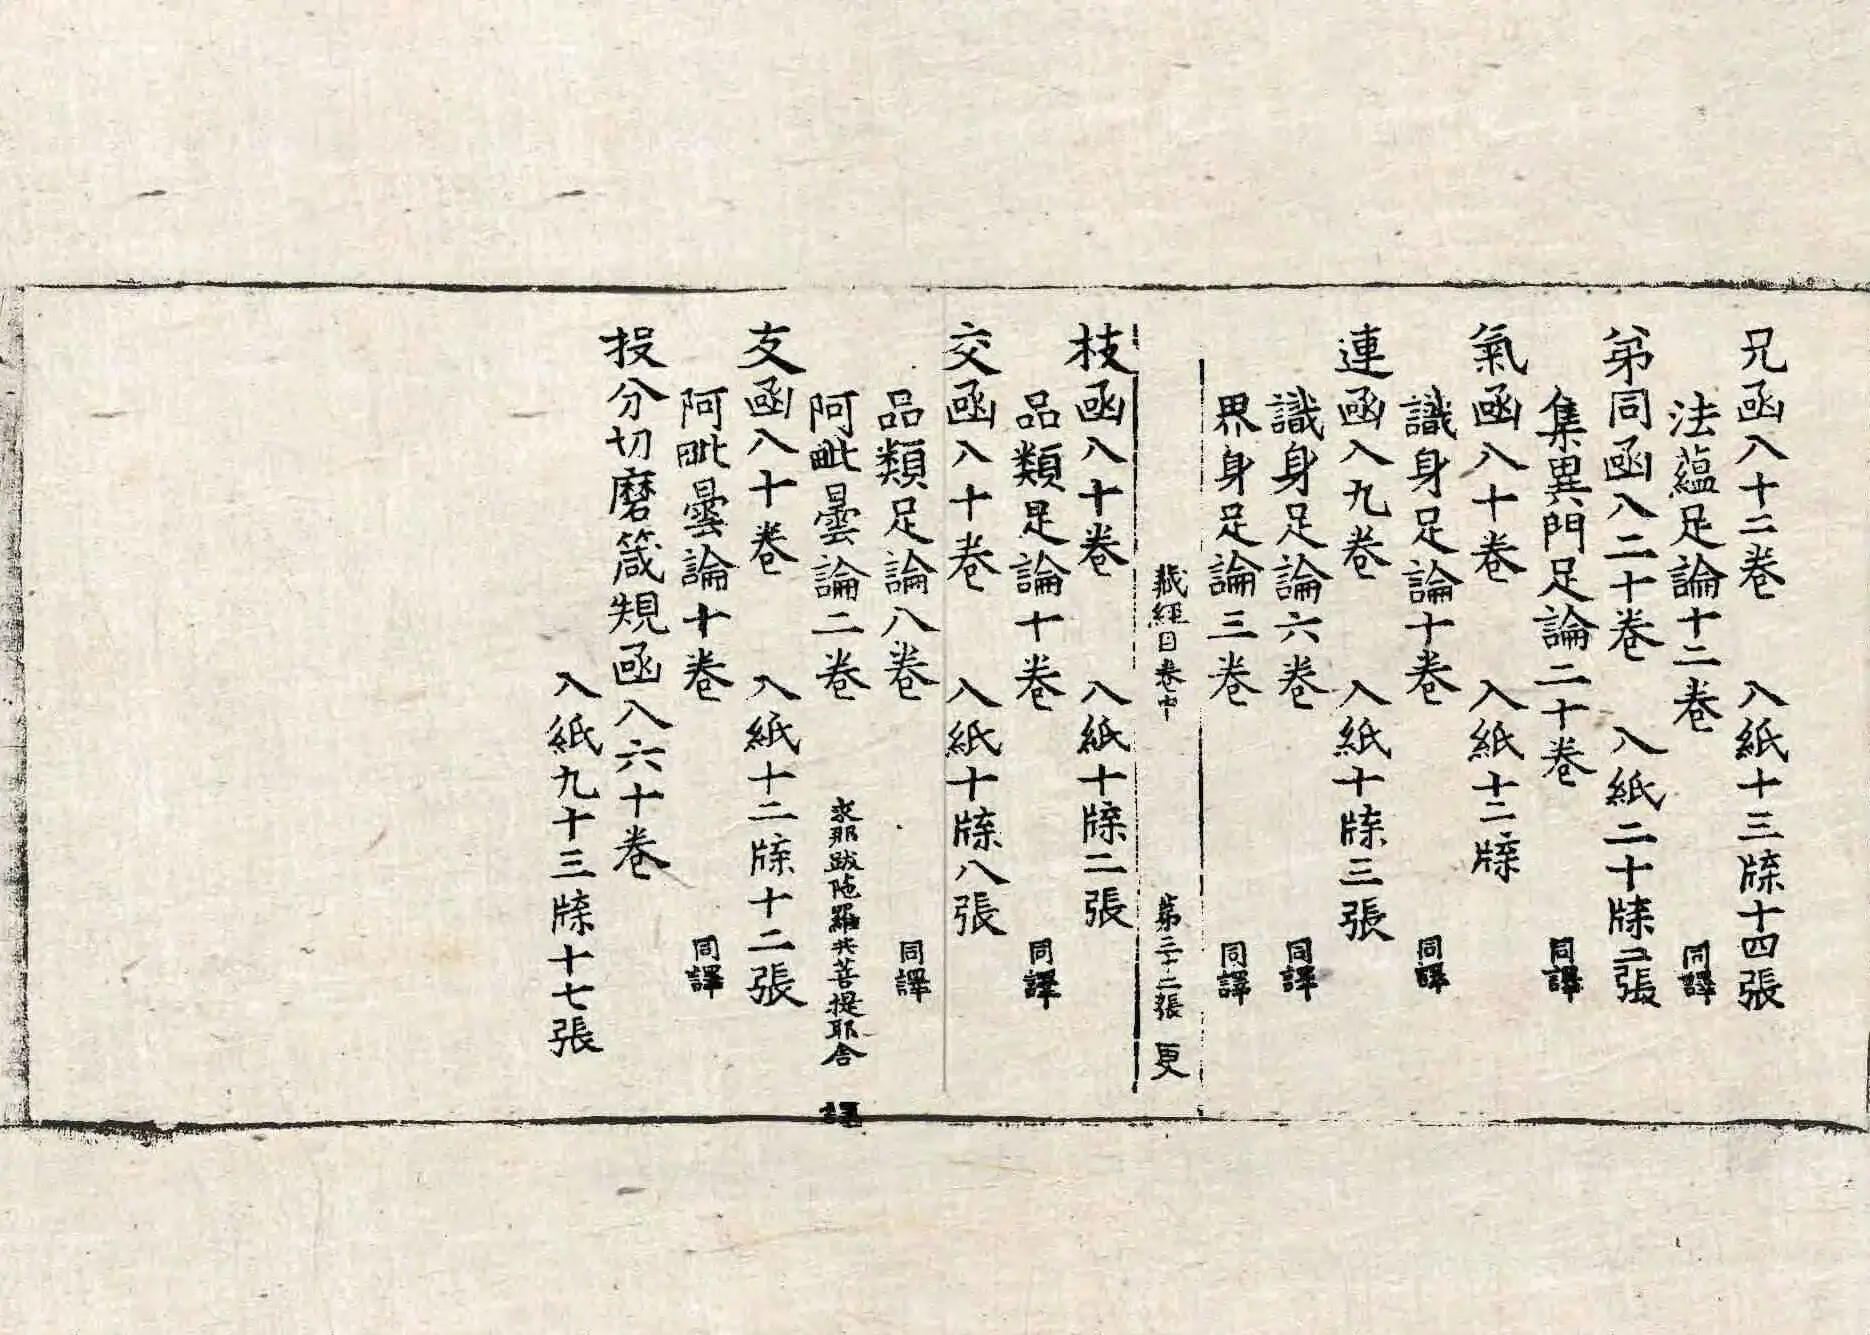 兄函入十二卷 入紙十三牒十四張
法蘊足論十二卷 同譯
弟同函入二十卷 入紙二十牒二張
集異門足論二十卷 同譯
氣函入十卷 入紙十二牒
識身足論十卷 同譯
連函入九卷 入紙十牒三張
識身足論六卷 同譯
界身足論三卷 同譯
藏經目卷中 第三十二張 更
枝函入十卷 入紙十牒二張
品類足論十卷 同譯
交函入十卷 入紙十牒八張
品類足論八卷 同譯
阿毗曇論二卷 求那跋陁羅共菩提耶舍譯
友函入十卷 入紙十二牒十二張
阿毗曇論十卷 同譯
投分切磨箴規函入六十卷
入紙九十三牒十七張